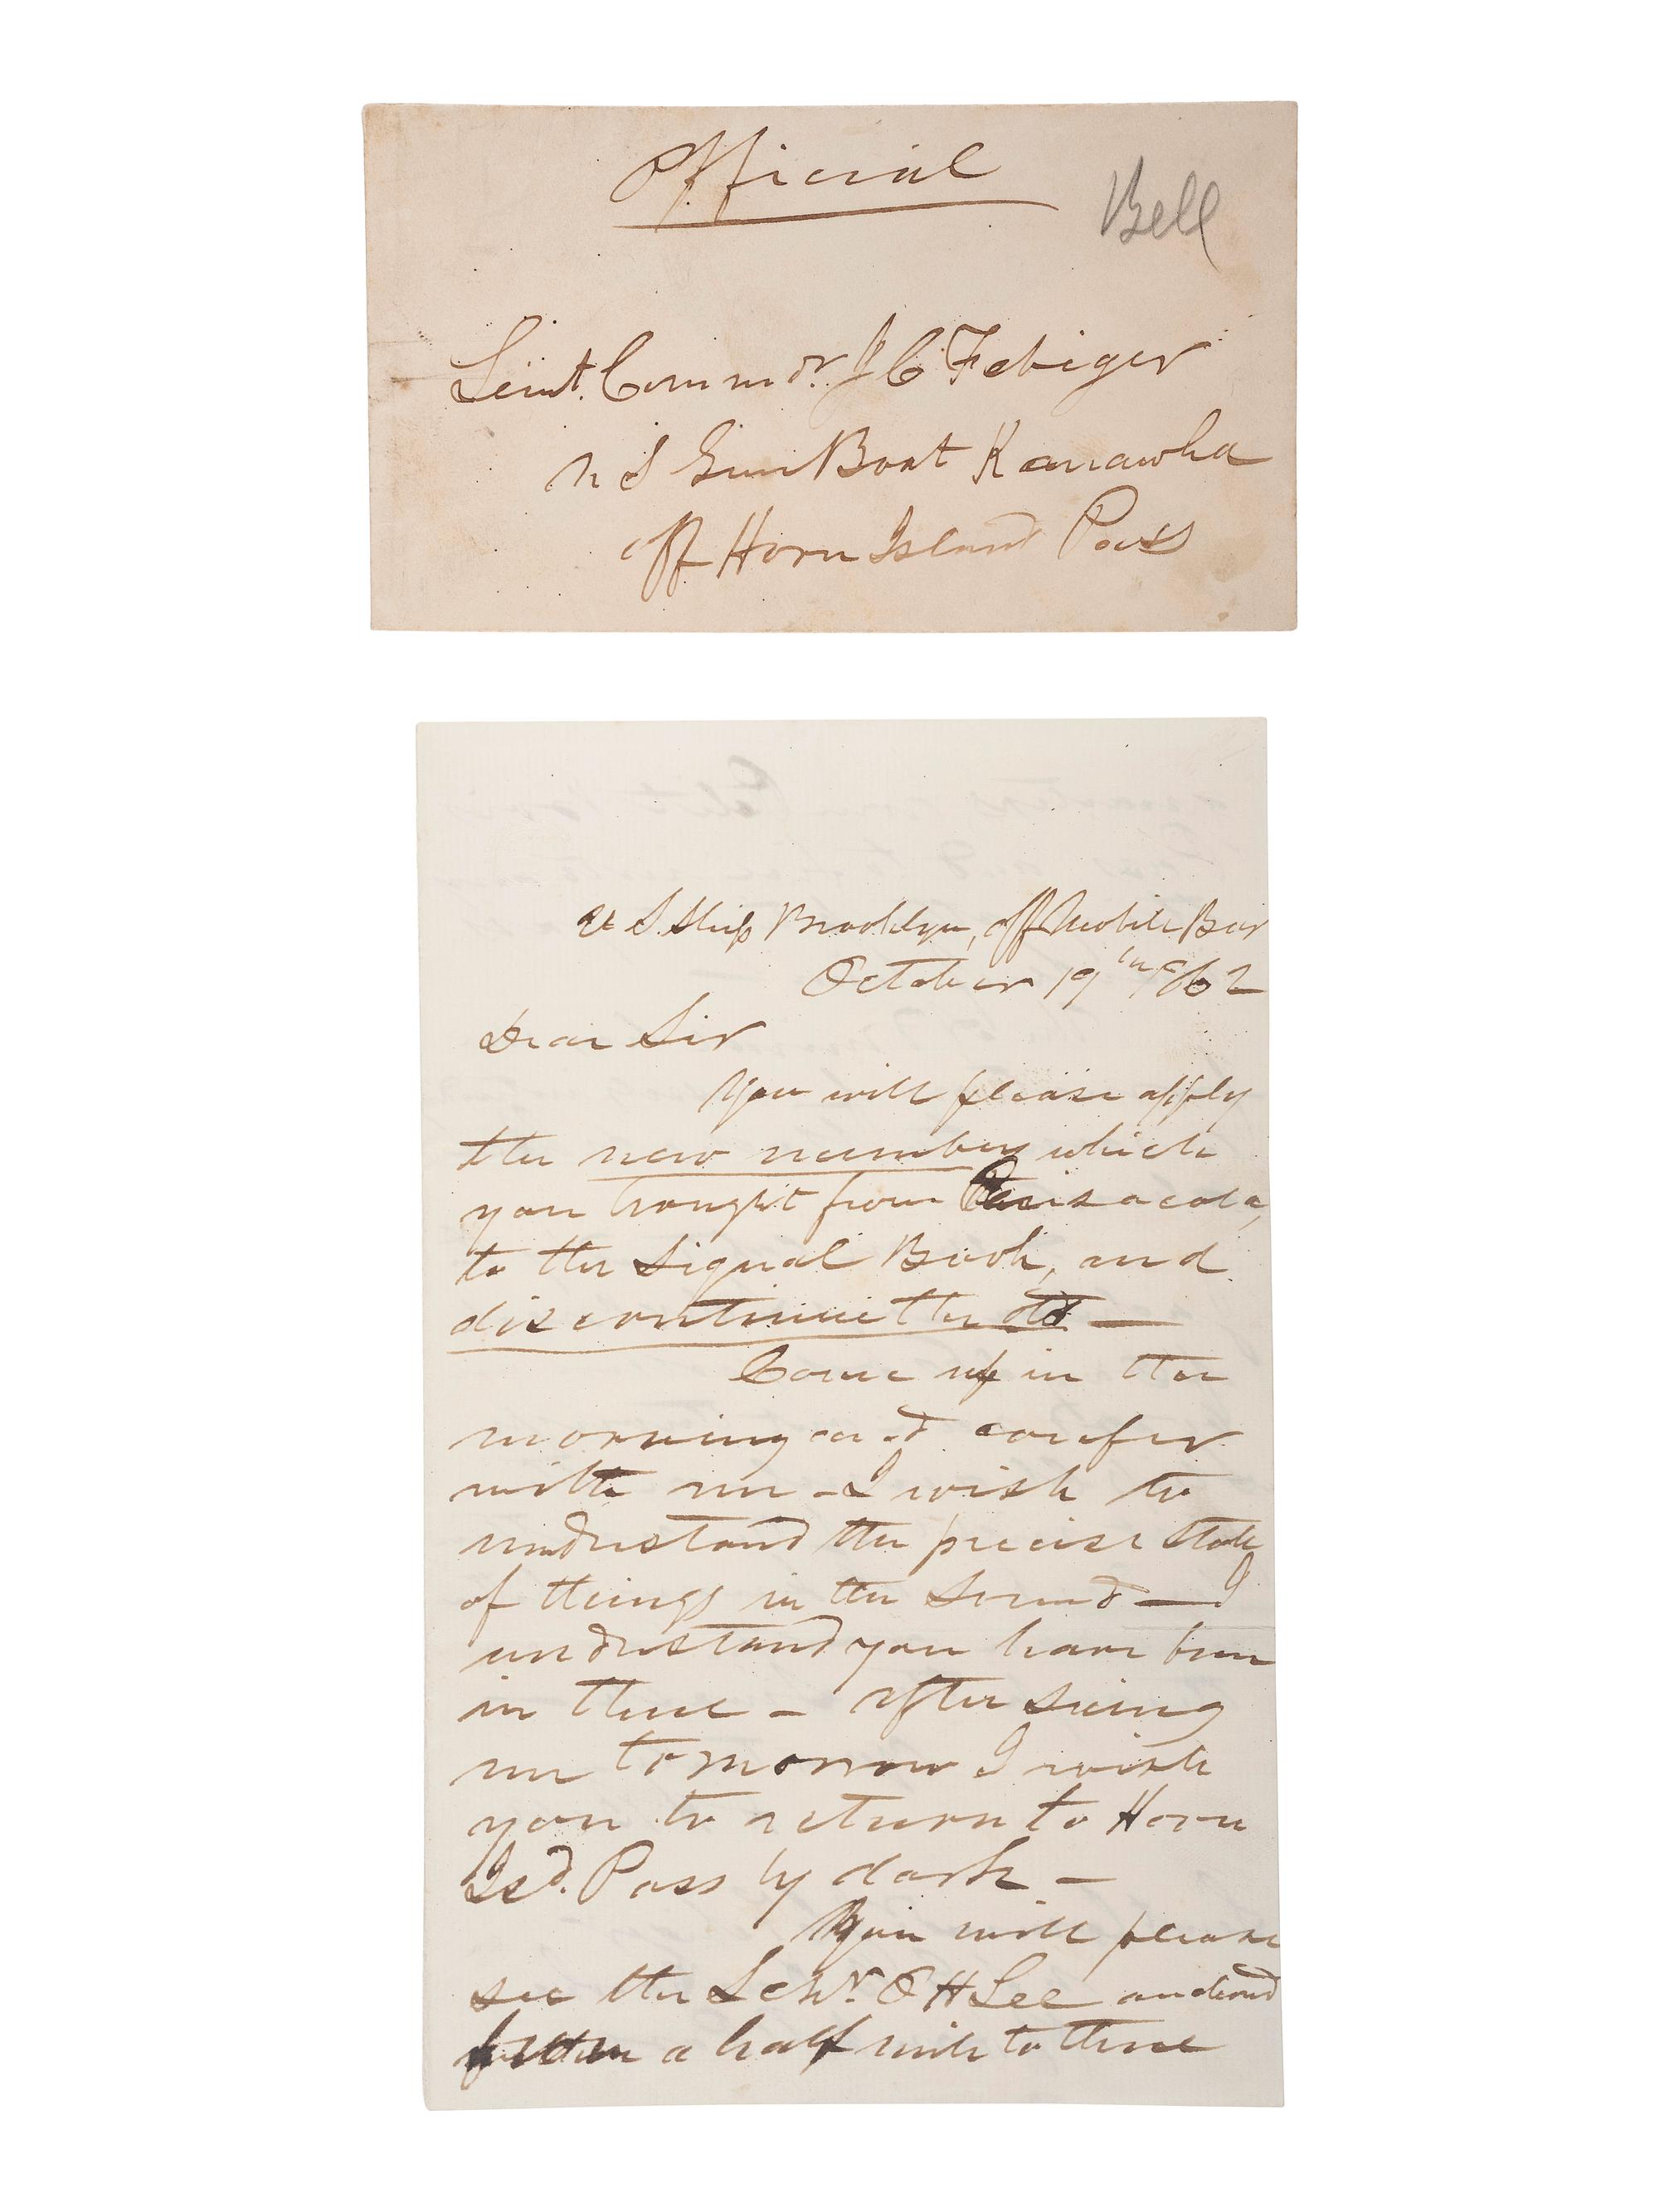 Official
Bell
Leiut. Commdr. J C Febiger
U S Gun Boat Kanawha
off Horn Island Pass
U S. Ship Brooklyn, off Mobile Bar
October 19th 1862
Dear Sir
You will please apply
the new numbers which
you brought from Pensacola,
to the Signal Book, and
discontinue the old —
Come up in the
morning and confer
with me — I wish to
understand the precise state
of things in the Sound — I
understand you have been
in there — after seeing
me tomorrow I wish
you to return to Horn
Isd. Pass by dark —
You will please
see the Schr. O H Lee anchored
from a half mile to three